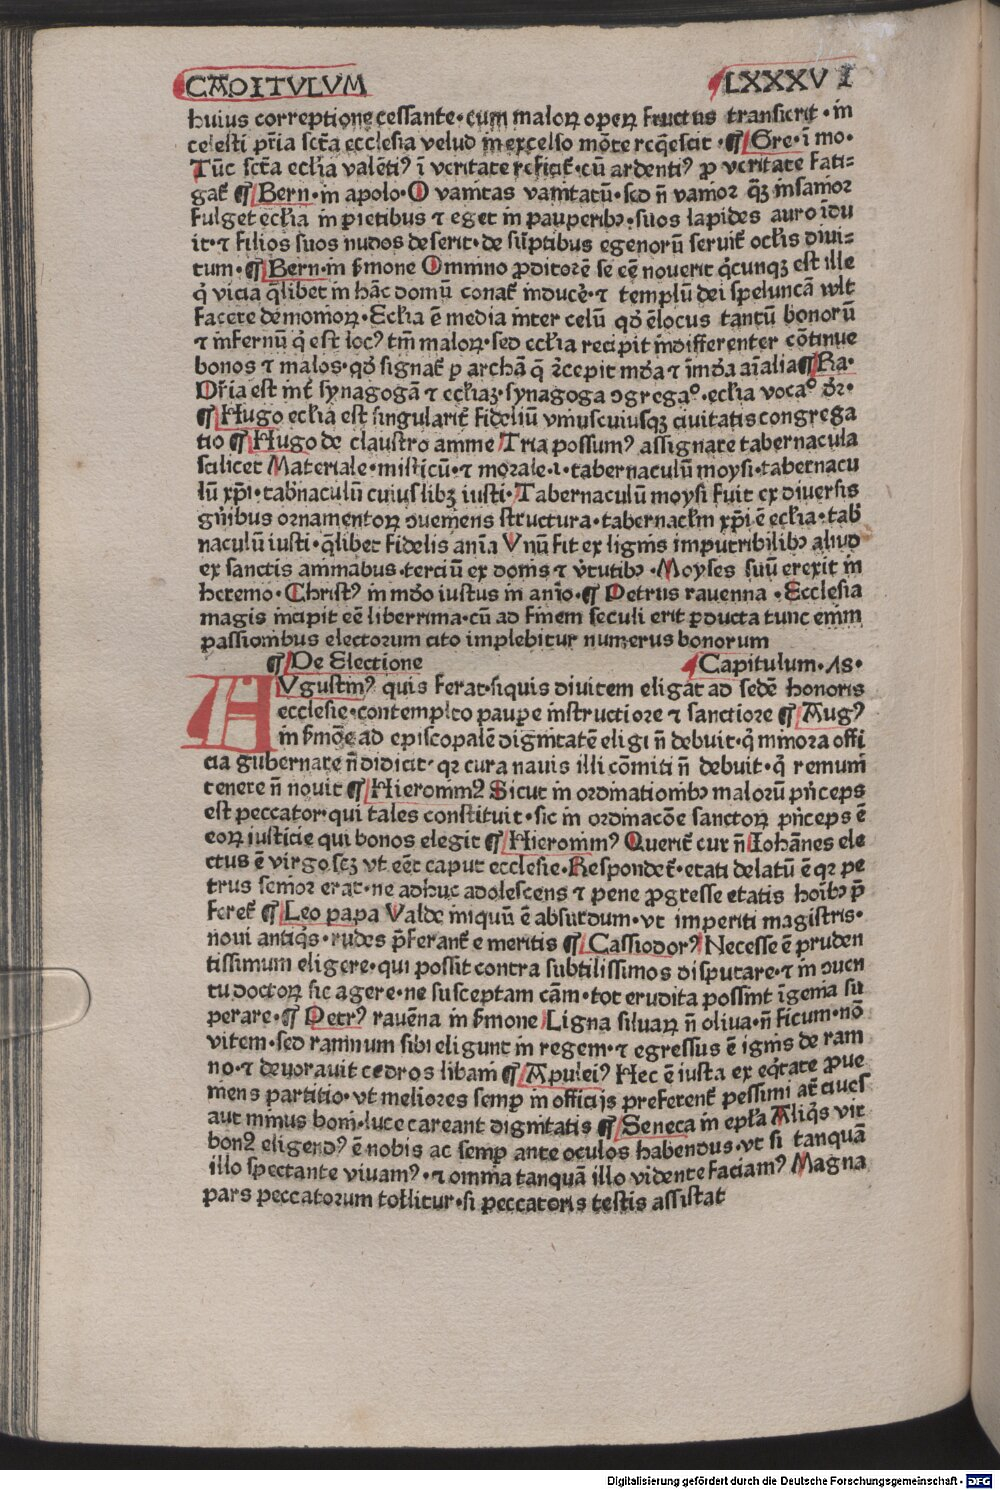 CAPITULUM LXXXVI
huius correptione cessante·cum maloꝝ opeꝝ fructus transierit·in
celesti pr̄ia sct̄a ecclesia velud in excelso mōte reqͥescit·¶ Gre·ī mo·
Tūc sct̄a eccłia valētiꝰ ī veritate reficit̄·cū ardentiꝰ ꝓ veritate fati⸗
gat̄ ¶ Bern·in apolo·O vanitas vanitatū·sed n̄ vanior qͣꝫ insanior
fulget eccłia in pietibus ⁊ eget in pauperibꝫ·suos lapides auro īdu
it·⁊ filios suos nudos deserit·de sūptibus egenorū seruit̄ ocłis diui⸗
tum·¶ Bern·in s̄mone Omnino ꝓditorē se eē nouerit qͥcunqꝫ est ille
qͥ vicia qͣlibet in hāc domū conat̄ inducē·⁊ templū dei speluncā vult
facere demonioꝝ·Eccłia ē media inter celū qd̄ ē locus tantū bonorū
⁊ infernū qͥ est locꝰ tm̄ maloꝝ·sed eccłia recipit indifferenter cōtinue
bonos ⁊ malos·qd̄ signat̄ ꝑ archā q̄ recepit mūda ⁊ īmūda aīalia ¶ Ra·
Dr̄ia est int̄ synagogā ⁊ eccłiaꝫ·synagoga ꝯgregaᵒ·eccłia vocaᵒ dr̄·
¶ Hugo eccłia est singularit̄ fideliū vniuscuiusqꝫ ciuitatis congrega
tio ¶ Hugo de claustro anime Tria possumꝰ assignare tabernacula
scilicet Materiale·misticū·⁊ morale·i·tabernaculū moysi·tabernacu
lū xp̄i·tab̄naculū cuiuslibꝫ iusti·Tabernaculū moysi fuit ex diuersis
gn̄ibus ornamentoꝝ ꝯueniens structura·tabernacłm xp̄i ē eccłia·tab̄
naculū iusti·qͣlibet fidelis anīa Vnū fit ex lignis imputribilibꝫ aliud
ex sanctis animabus·terciū ex donis ⁊ v̄tutibꝫ·Moyses suū erexit in
heremo·Christꝰ in mūdo iustus in anīo·¶ Petrus rauenna·Ecclesia
magis incipit eē liberrima·cū ad finem seculi erit ꝑducta tunc enim
passionibus electorum cito implebitur numerus bonorum
¶ De Electione Capitulum·18·
AVgustinꝰ quis ferat·siquis diuitem eligat ad sedē honoris
ecclesie·contempto paupe instructiore ⁊ sanctiore ¶ Augꝰ
in s̄mōe ad episcopalē dignitatē eligi n̄ debuit·qͥ minora offi
cia gubernare n̄ didicit·qꝛ cura nauis illi cōmitti n̄ debuit·qͥ remum
tenere n̄ nouit ¶ Hieronimꝰ Sicut in ordinationibꝫ malorū pn̄ceps
est peccator·qui tales constituit·sic in ordinacōe sanctoꝝ pn̄ceps ē
eoꝝ iusticie qui bonos elegit ¶ Hieronimꝰ Querit̄ cur n̄ Iohānes ele
ctus ē virgo scꝫ vt eēt caput ecclesie·Respondet̄·etati delatū ē qꝛ pe
trus senior erat·ne adhuc adolescens ⁊ pene ꝓgresse etatis hoībꝫ p̄
feret̄ ¶ Leo papa Valde iniquū ē absurdum·vt imperiti magistris·
noui antiqͥs·rudes p̄ferant̄ emeritis ¶ Cassiodorꝰ Necesse ē pruden
tissimum eligere·qui possit contra subtilissimos disputare·⁊ in ꝯuen
tu doctoꝝ sic agere·ne susceptam cām·tot erudita possint īgenia su
perare·¶ Petrꝰ rauēna in s̄mone Ligna siluaꝝ n̄ oliua·n̄ ficum·nō
vitem·sed ramnum sibi eligunt in regem·⁊ egressus ē ignis de ram
no·⁊ deuorauit cedros libani ¶ Apuleiꝰ Hec ē iusta ex eqͥtate ꝓue
niens partitio·vt meliores semꝑ in officijs preferent̄ pessimi at̄ ciues
aut minus boni·luce careant dignitatis ¶ Seneca in epła Aliqͥs vir
bonꝰ eligendꝰ ē nobis ac semꝑ ante oculos habendus·vt si tanquā
illo spectante viuamꝰ·⁊ omnia tanquā illo vidente faciamꝰ Magna
pars peccatorum tollitur·si peccatoris testis assistat
Digitalisierung gefördert durch die Deutsche Forschungsgemeinschaft - DFG